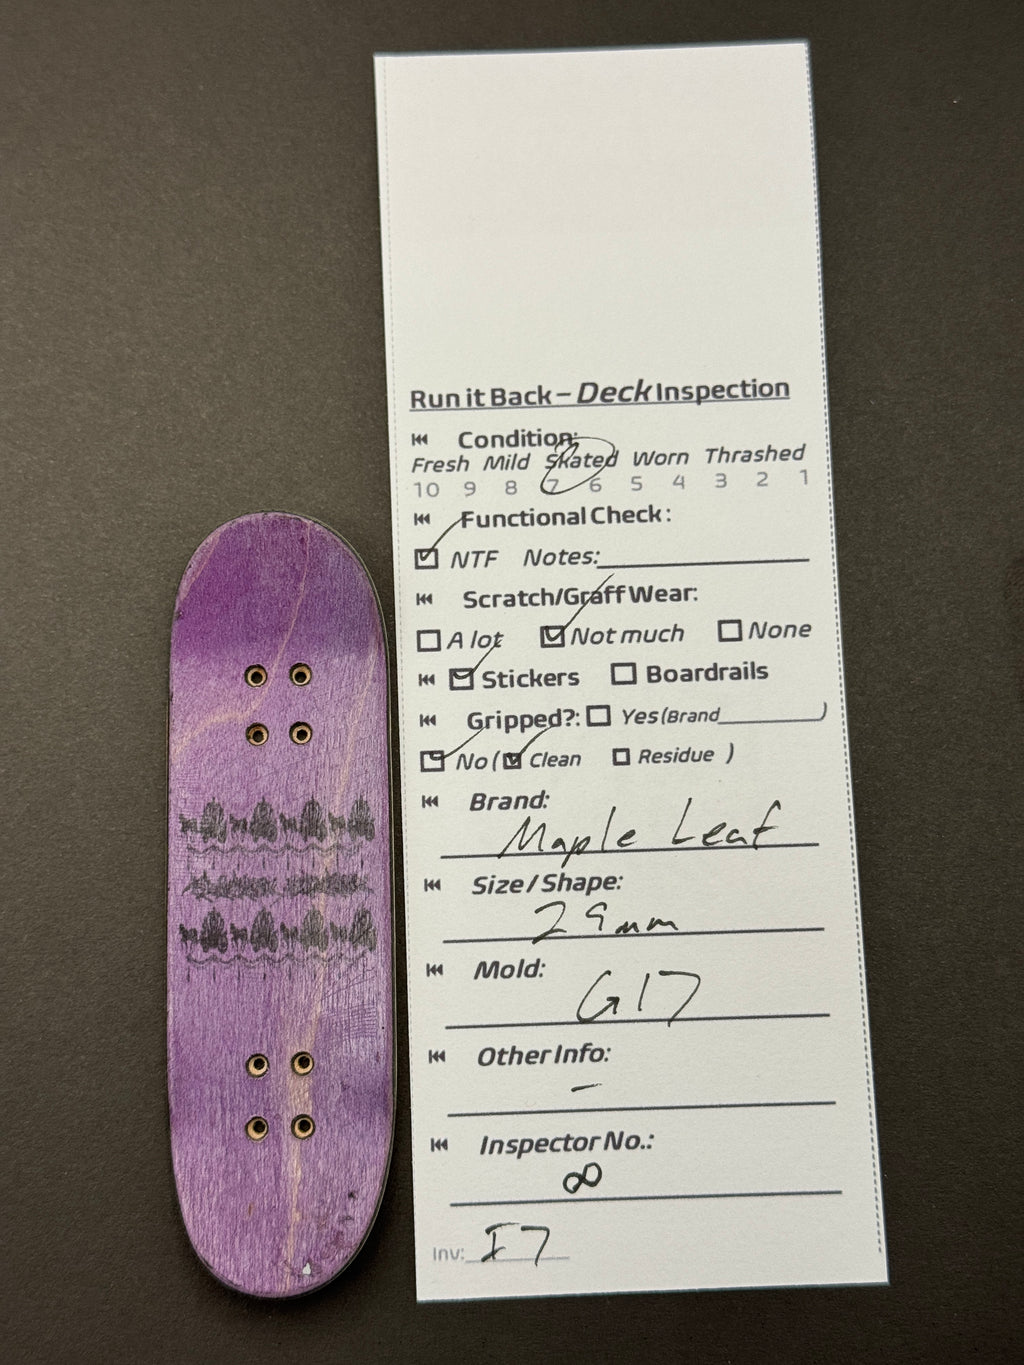 Run it Back – Deck Inspection
Condition:
Fresh Mild Skated Worn Thrashed
10 9 8 7 6 5 4 3 2 1
Functional Check:
NTF Notes:
Scratch/Graff Wear:
A lot Not much None
Stickers Boardrails
Gripped?: Yes (Brand )
No ( Clean Residue )
Brand:
Maple Leaf
Size / Shape:
29mm
Mold:
G17
Other Info:
–
Inspector No.:
∞
Inv: I7